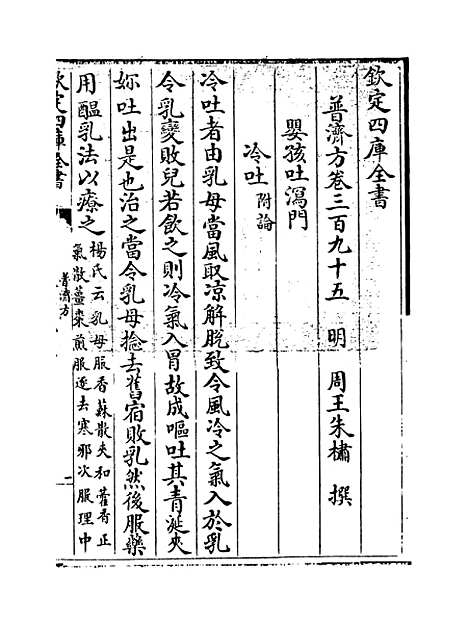 欽定四庫全書
普濟方卷三百九十五　明　周王朱橚　撰
嬰孩吐瀉門
冷吐附論
冷吐者由乳母當風取凉解脱致令風冷之氣入於乳
令乳變敗兒若飲之則冷氣入胃故成嘔吐其青涎夾
妳吐出是也治之當令乳母捻去舊宿敗乳然後服藥
用醖乳法以療之楊氏云乳母服香蘇散夫和藿香正
氣散薑棗煎服逐去寒邪次服理中
欽定四庫全書
普濟方
二